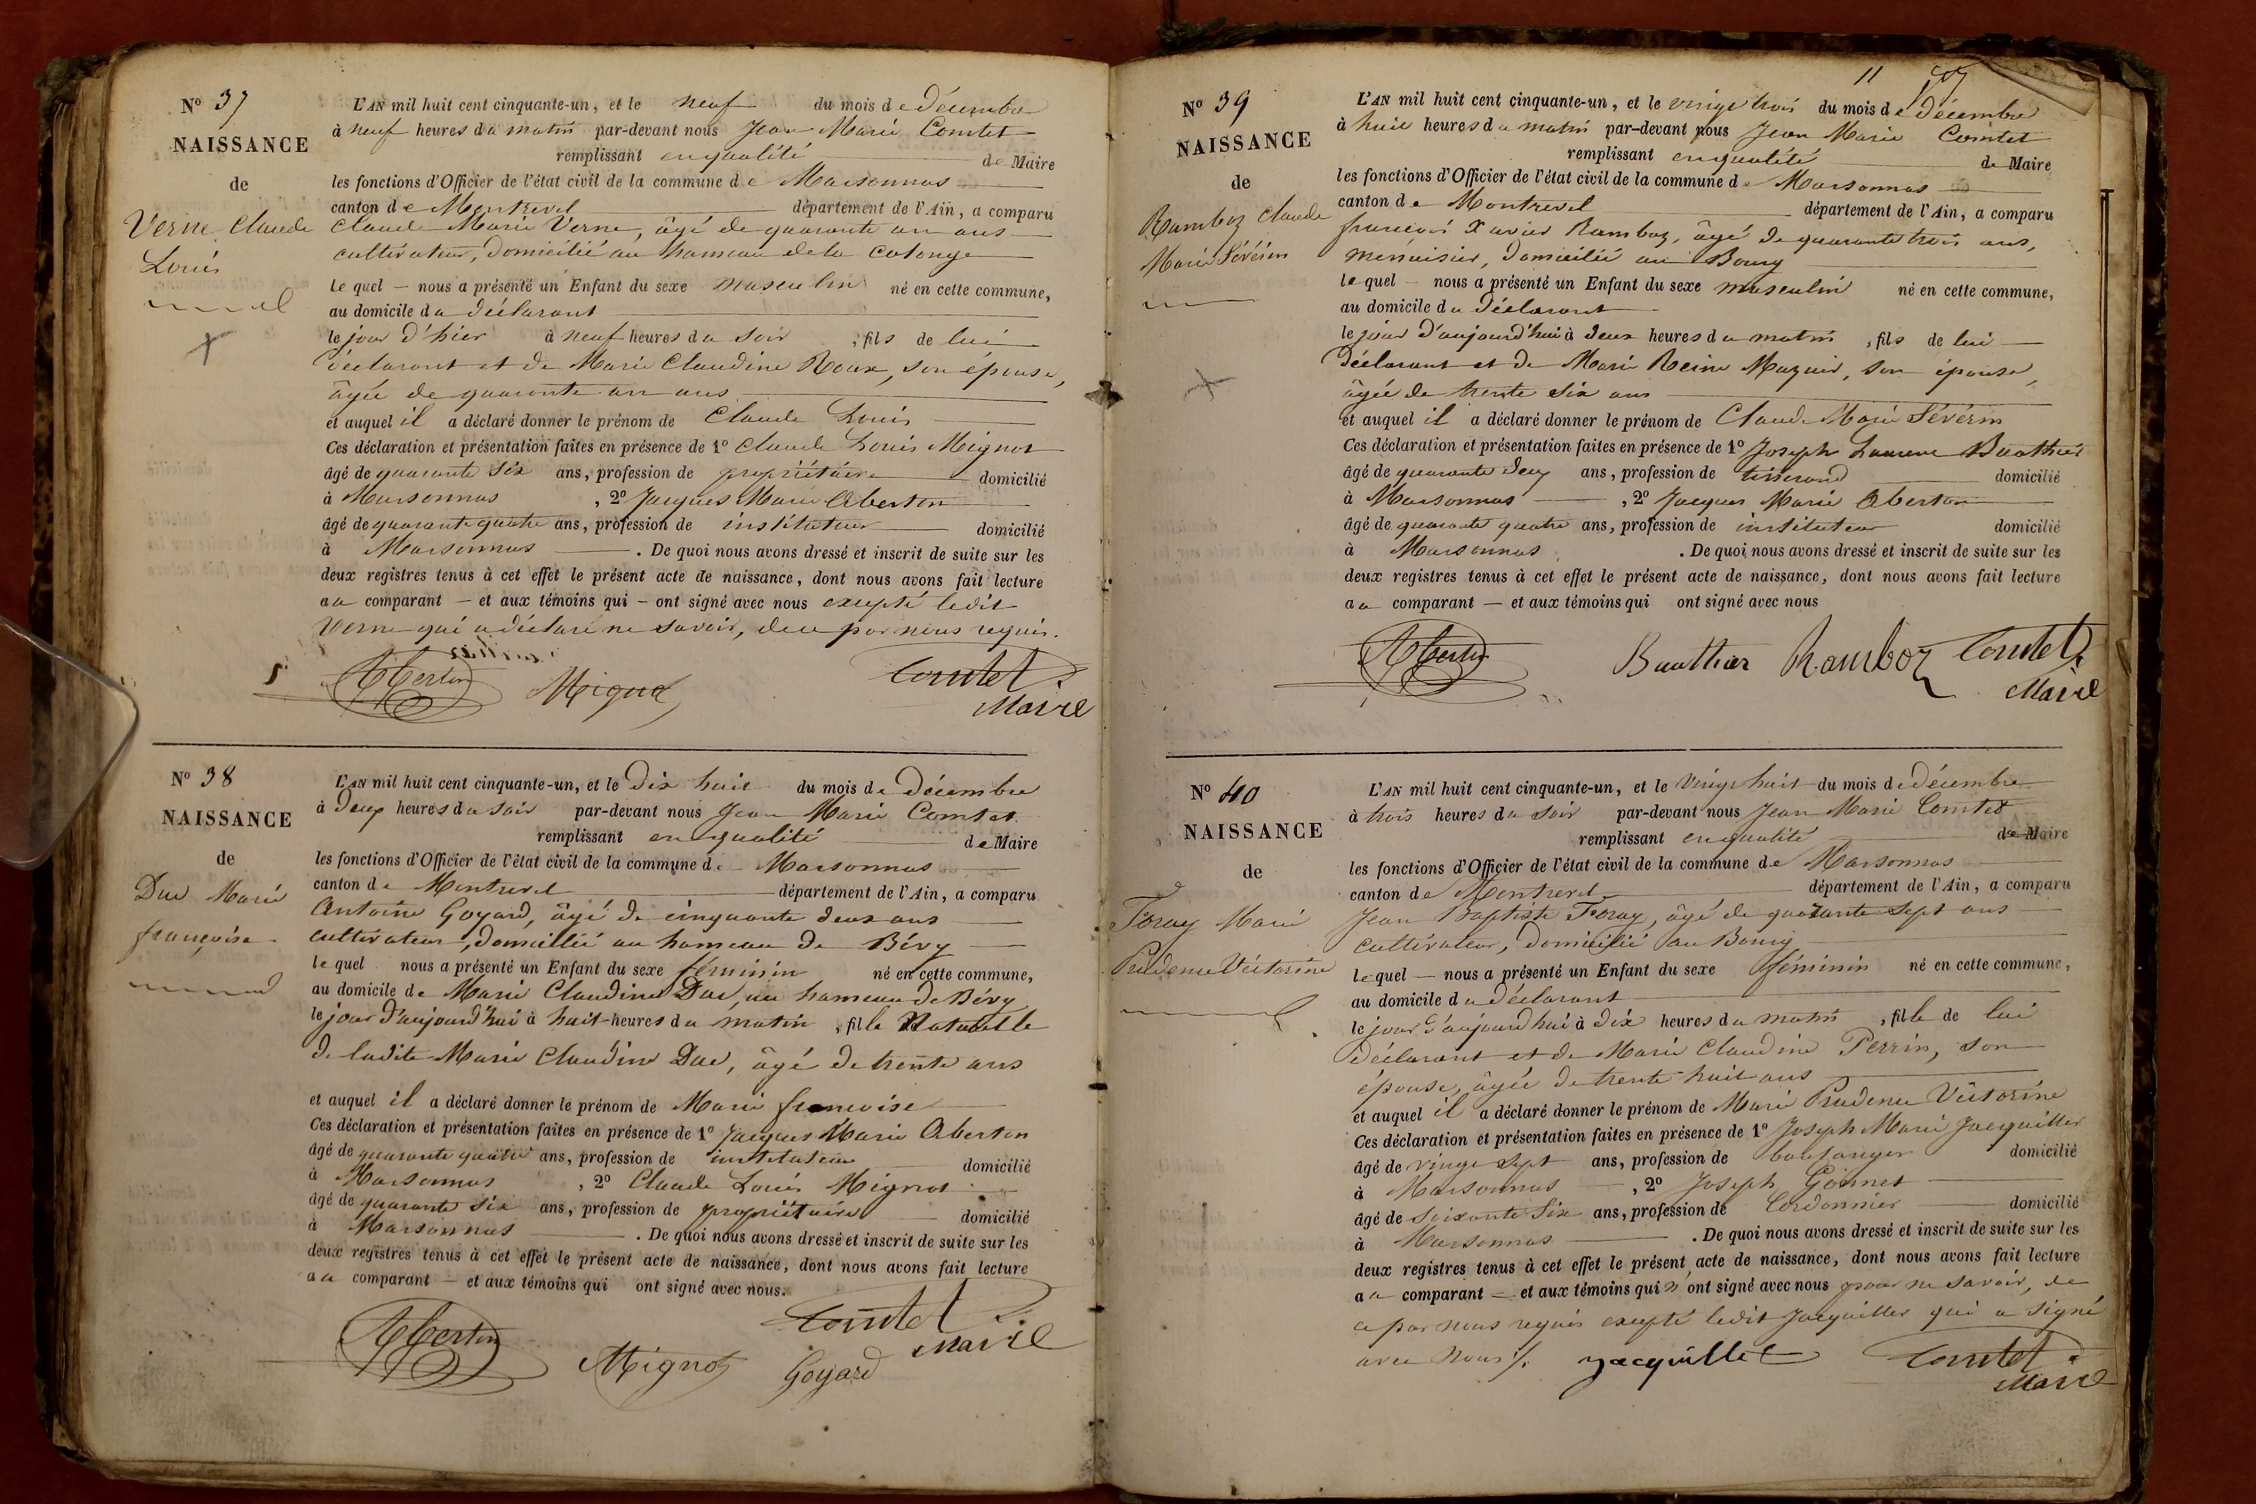 Nº 37
NAISSANCE
de
Verne Claude
Louis
L'AN mil huit cent cinquante-un, et le neuf du mois de décembre
à neuf heures du matin par-devant nous Jean Marie Comtet
remplissant en qualité de Maire
les fonctions d'Officier de l'état civil de la commune de Marsonnas
canton de Montrevel département de l'Ain, a comparu
Claude Marie Verne, âgé de quarante un ans
cultivateur, domicilié au hameau de la Catonge
lequel nous a présenté un Enfant du sexe masculin né en cette commune,
au domicile du déclarant
le jour d'hier à neuf heures du soir, fils de lui
déclarant et de Marie Claudine Roux, son épouse,
âgée de quarante un ans
et auquel il a déclaré donner le prénom de Claude Louis
Ces déclaration et présentation faites en présence de 1º Claude Louis Mignot
âgé de quarante six ans, profession de propriétaire domicilié
à Marsonnas, 2º Jacques Marie Oberton
âgé de quarante quatre ans, profession de instituteur domicilié
à Marsonnas. De quoi nous avons dressé et inscrit de suite sur les
deux registres tenus à cet effet le présent acte de naissance, dont nous avons fait lecture
au comparant et aux témoins qui ont signé avec nous excepté ledit
Verne qui a déclaré ne savoir, de ce par nous requis.
Mignot Comtet
Maire
Nº 38
NAISSANCE
de
Duc Marie
françoise
L'AN mil huit cent cinquante-un, et le dix huit du mois de décembre
à deux heures du soir par-devant nous Jean Marie Comtet
remplissant en qualité de Maire
les fonctions d'Officier de l'état civil de la commune de Marsonnas
canton de Montrevel département de l'Ain, a comparu
Antoine Goyard, âgé de cinquante deux ans
cultivateur, domicilié au hameau de Bévy
lequel nous a présenté un Enfant du sexe féminin né en cette commune,
au domicile de Marie Claudine Duc, au hameau de Bévy
le jour d'aujourd'hui à huit heures du matin, fille Naturelle
de ladite Marie Claudine Duc, âgé de trente ans
et auquel il a déclaré donner le prénom de Marie françoise
Ces déclaration et présentation faites en présence de 1º Jacques Marie Oberton
âgé de quarante quatre ans, profession de instituteur domicilié
à Marsonnas, 2º Claude Louis Mignot
âgé de quarante six ans, profession de propriétaire domicilié
à Marsonnas. De quoi nous avons dressé et inscrit de suite sur les
deux registres tenus à cet effet le présent acte de naissance, dont nous avons fait lecture
au comparant et aux témoins qui ont signé avec nous.
Mignot Goyard Comtet
Maire
11
Nº 39
NAISSANCE
de
Ramboz Claude
Marie Sévérin
L'AN mil huit cent cinquante-un, et le vingt trois du mois de décembre
à huit heures du matin par-devant nous Jean Marie Comtet
remplissant en qualité de Maire
les fonctions d'Officier de l'état civil de la commune de Marsonnas
canton de Montrevel département de l'Ain, a comparu
françois Xavier Ramboz, âgé de quarante trois ans,
menuisier, domicilié au Bourg
lequel nous a présenté un Enfant du sexe masculin né en cette commune,
au domicile du déclarant
le jour d'aujourd'hui à deux heures du matin, fils de lui
déclarant et de Marie Reine Mazuir, son épouse,
âgée de trente six ans
et auquel il a déclaré donner le prénom de Claude Marie Sévérin
Ces déclaration et présentation faites en présence de 1º Joseph Laurent Buathier
âgé de quarante deux ans, profession de tisserand domicilié
à Marsonnas, 2º Jacques Marie Oberton
âgé de quarante quatre ans, profession de instituteur domicilié
à Marsonnas. De quoi nous avons dressé et inscrit de suite sur les
deux registres tenus à cet effet le présent acte de naissance, dont nous avons fait lecture
au comparant et aux témoins qui ont signé avec nous
Buathier Ramboz Comtet
Maire
Nº 40
NAISSANCE
de
Foray Marie
Prudence Victorine
L'AN mil huit cent cinquante-un, et le vingt huit du mois de décembre
à trois heures du soir par-devant nous Jean Marie Comtet
remplissant en qualité de Maire
les fonctions d'Officier de l'état civil de la commune de Marsonnas
canton de Montrevel département de l'Ain, a comparu
Jean Baptiste Foray, âgé de quarante sept ans
cultivateur, domicilié au Bourg
lequel nous a présenté un Enfant du sexe féminin né en cette commune,
au domicile du déclarant
le jour d'aujourd'hui à dix heures du matin, fille de lui
déclarant et de Marie Claudine Perrin, son
épouse, âgée de trente huit ans
et auquel il a déclaré donner le prénom de Marie Prudence Victorine
Ces déclaration et présentation faites en présence de 1º Joseph Marie Jacquillet
âgé de vingt sept ans, profession de boulanger domicilié
à Marsonnas, 2º Joseph Gonnet
âgé de soixante six ans, profession de Cordonnier domicilié
à Marsonnas. De quoi nous avons dressé et inscrit de suite sur les
deux registres tenus à cet effet le présent acte de naissance, dont nous avons fait lecture
au comparant et aux témoins qui n'ont signé avec nous pour ne savoir, de
ce par nous requis excepté ledit Jacquillet qui a signé
avec nous ./. Jacquillet Comtet
Maire